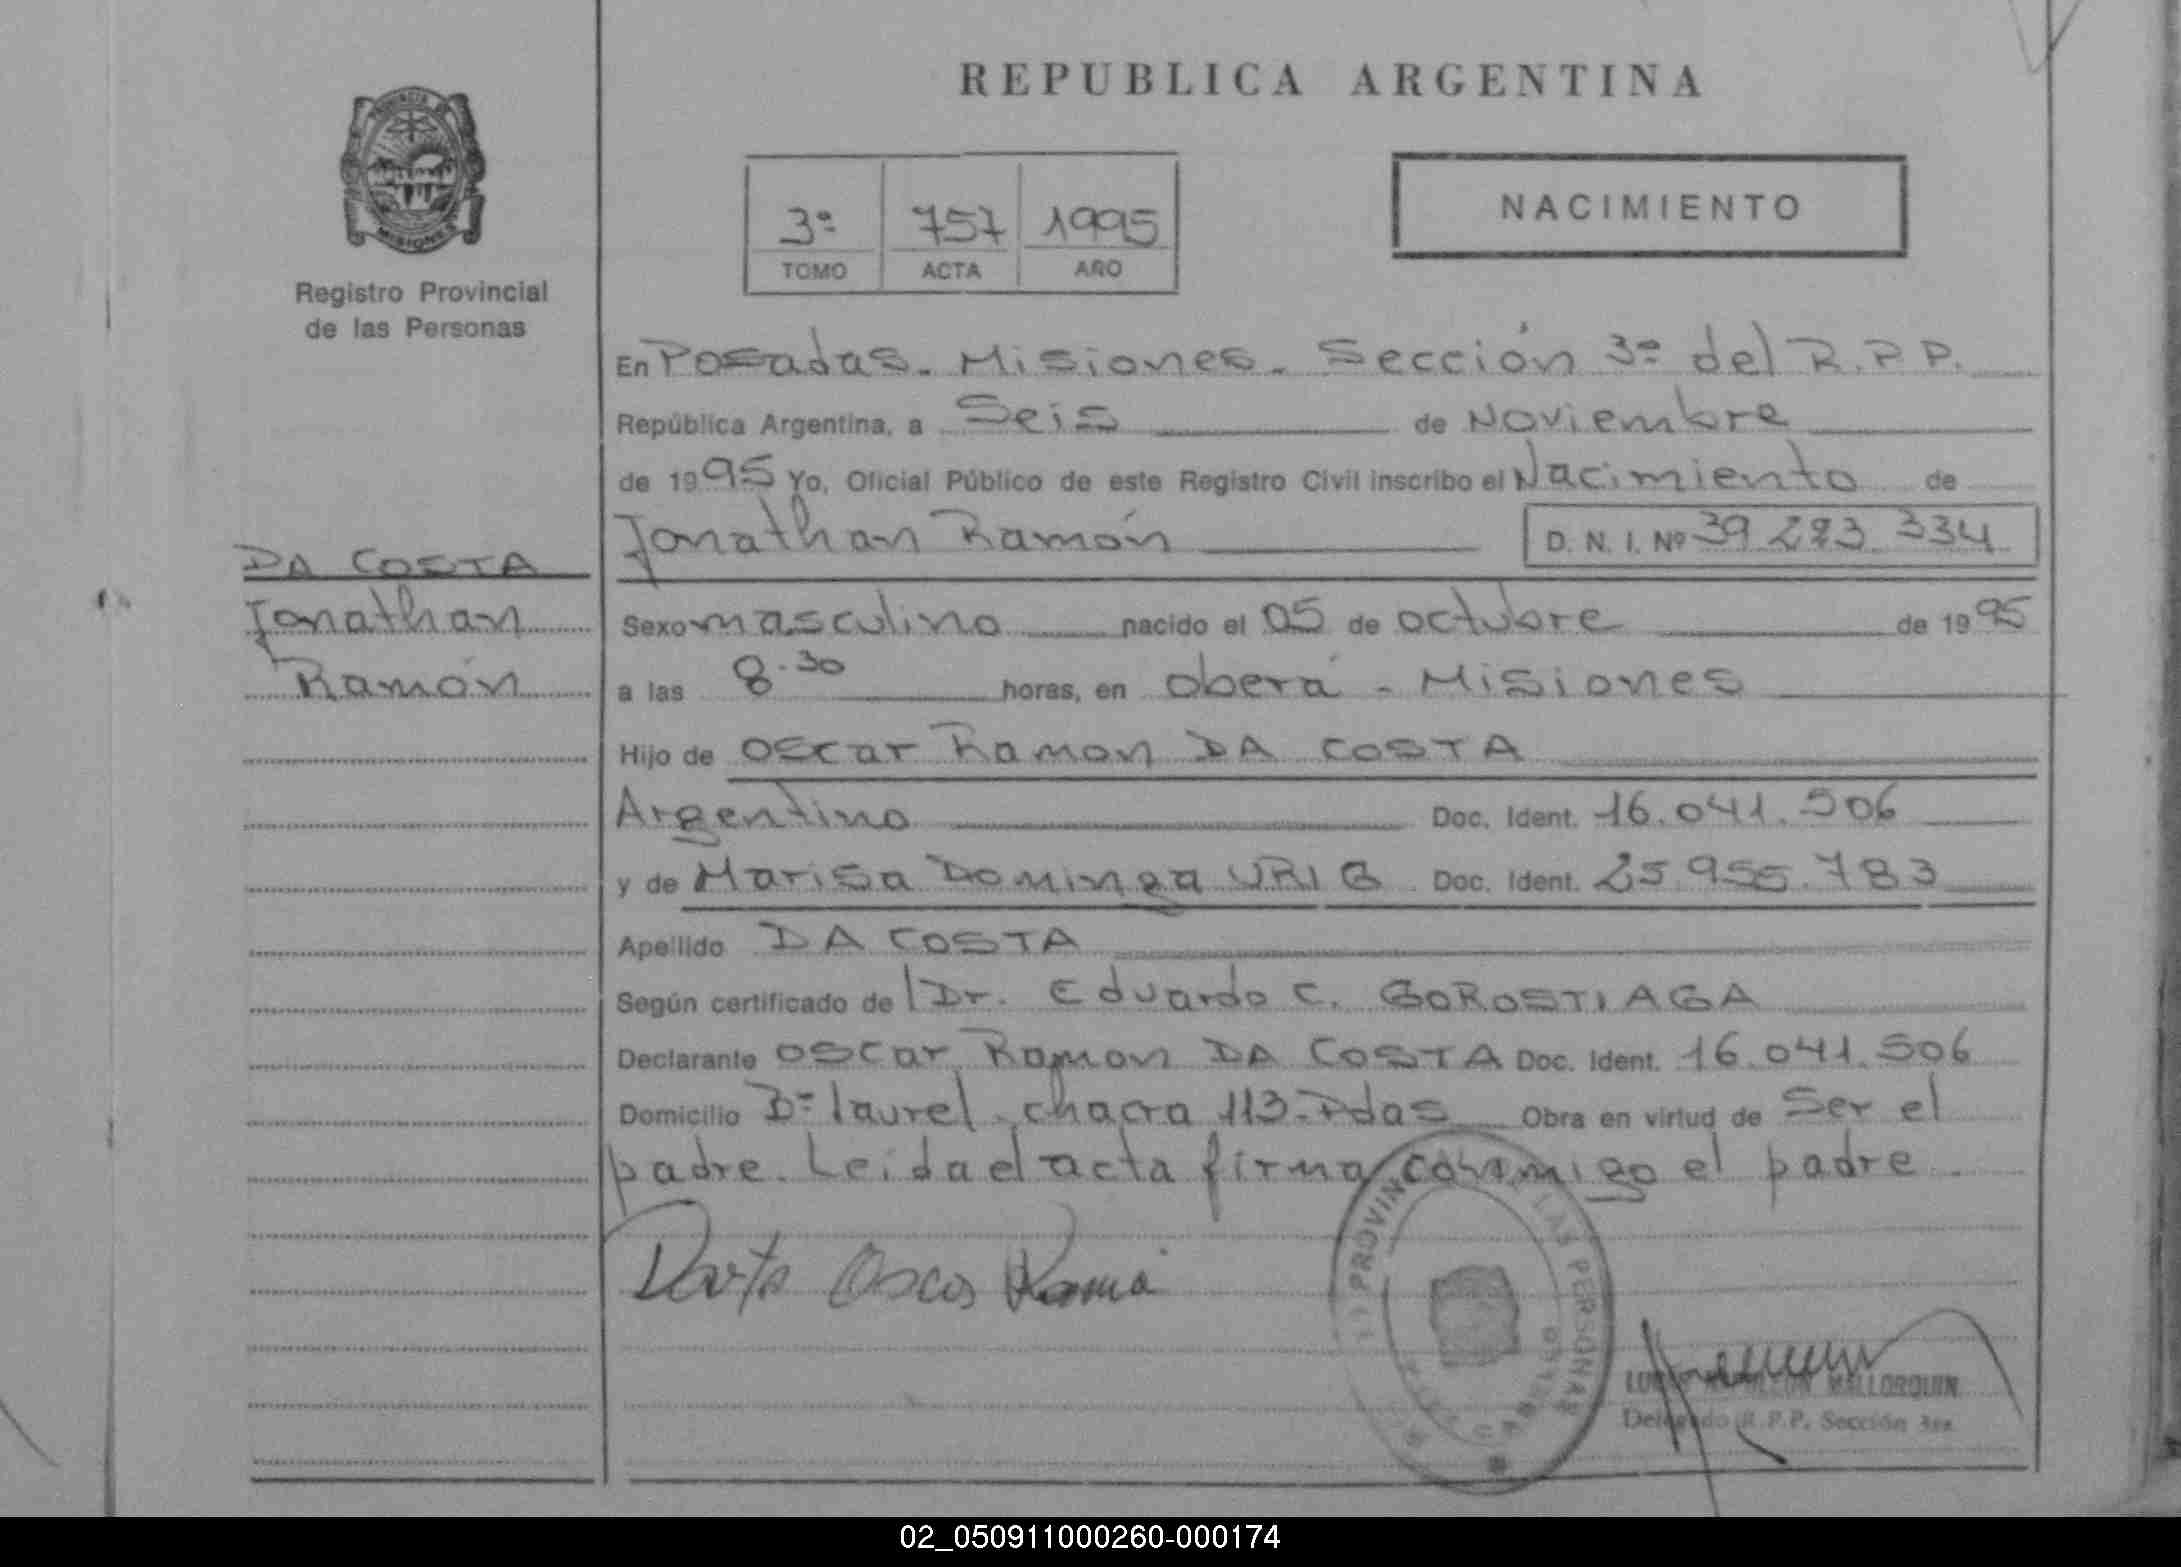 REPUBLICA ARGENTINA
PROVINCIA DE
MISIONES
Registro Provincial
de las Personas
3ª 757 1995
TOMO ACTA AÑO
NACIMIENTO
En Posadas. Misiones. Sección 3ª del R.P.P.
República Argentina, a Seis de Noviembre
de 1995 Yo, Oficial Público de este Registro Civil inscribo el Nacimiento de
Jonathan Ramón D. N. I. Nº 39.223.334
DA COSTA
Jonathan
Ramón
Sexo masculino nacido el 05 de octubre de 1995
a las 8.30 horas, en Oberá - Misiones
Hijo de Oscar Ramon DA COSTA
Argentino Doc. Ident. 16.041.506
y de Marisa Dominga URIG Doc. Ident. 25.955.783
Apellido DA COSTA
Según certificado de Dr. Eduardo C. GOROSTIAGA
Declarante Oscar Ramon DA COSTA Doc. Ident. 16.041.506
Domicilio Bº laurel - chacra 113 - Pdas Obra en virtud de Ser el
padre. Leida el acta firma conmigo el padre
Oscar
PROVINCIAL LAS PERSONAS
MALLORQUIN
Delegado R.P.P. Sección 3ra
02_050911000260-000174